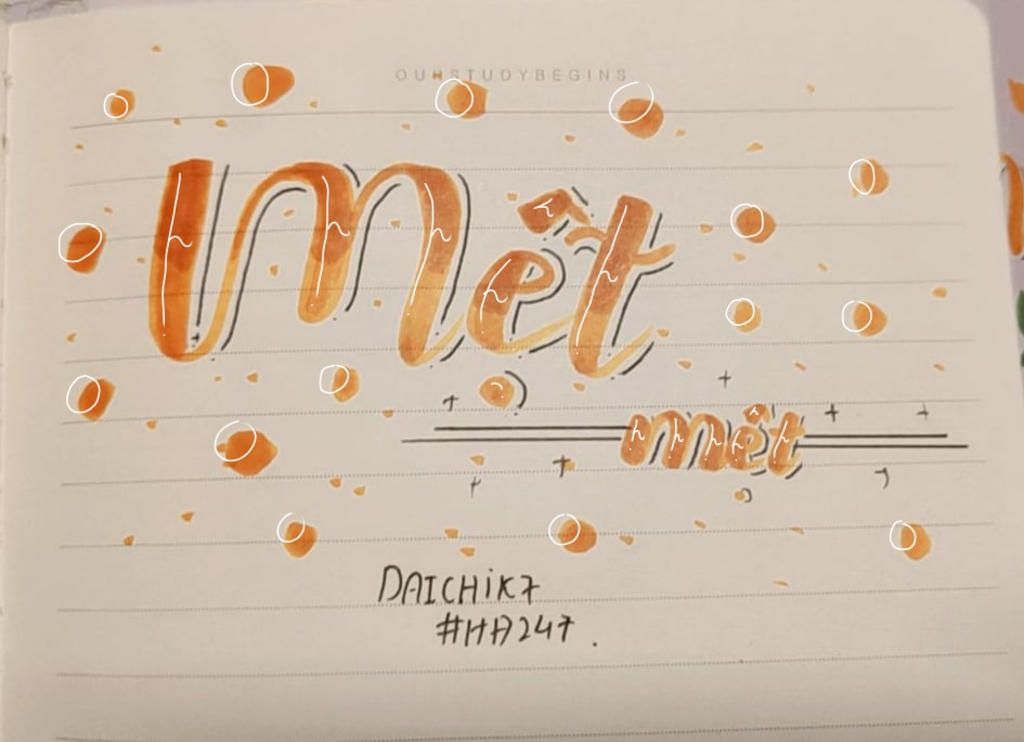 OUR STUDY BEGINS
mệt
mệt
DAICHiK7
#HA247.